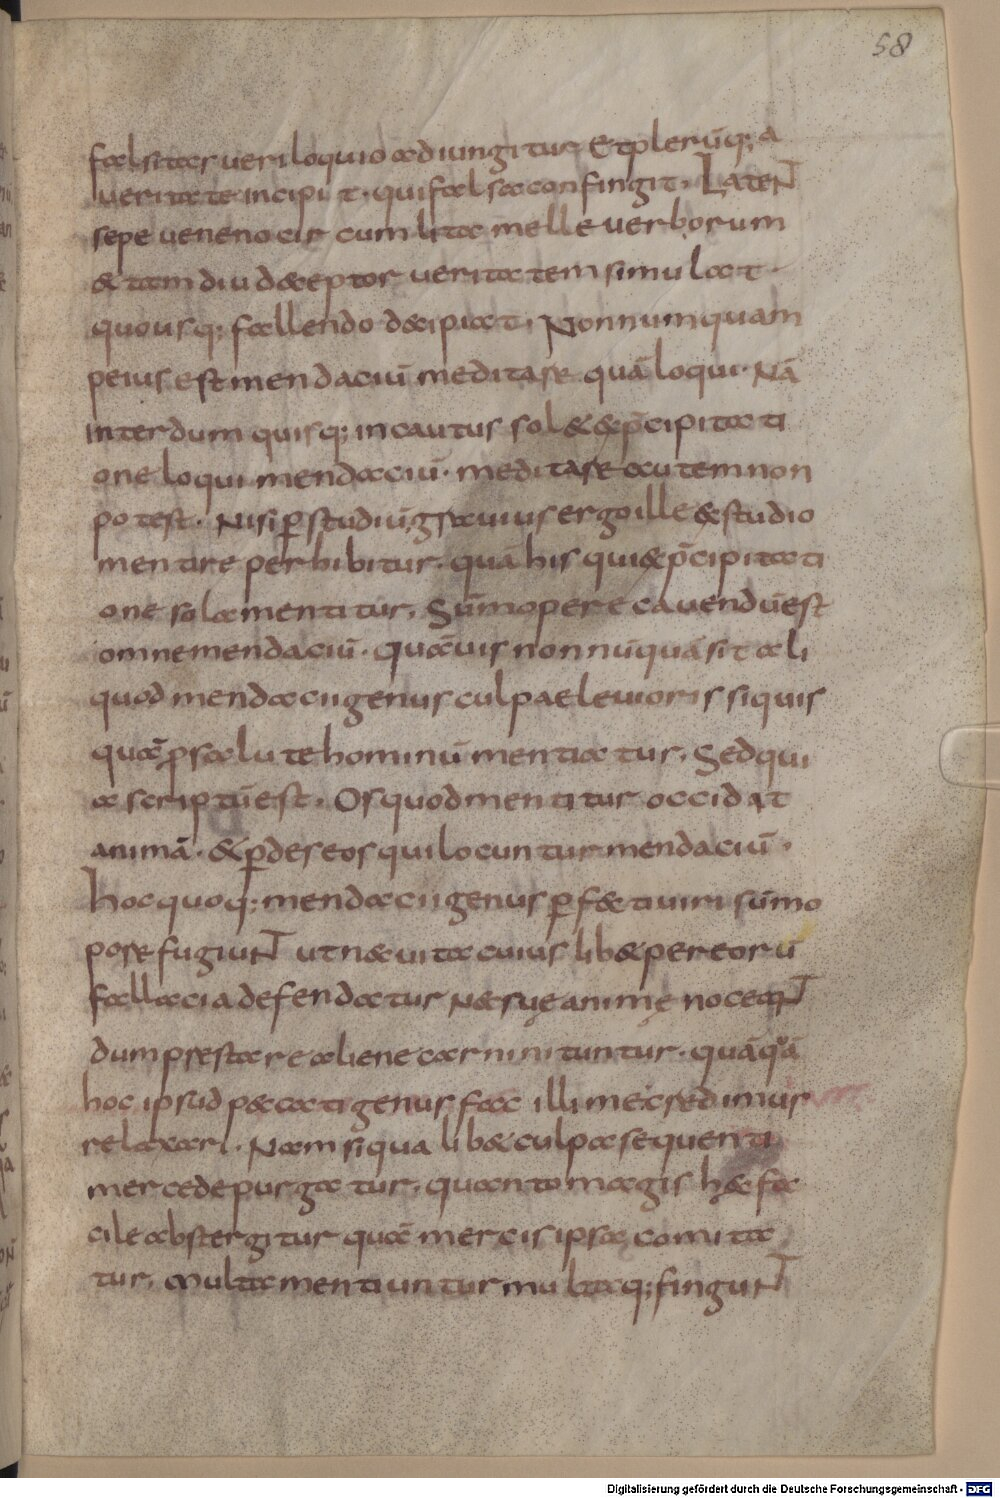 58
falsitas veriloquio adiungitur Et plerūq; a
veritate incipit. qui falsa confingit. LateNT
sepe veneno circumlita melle verborum
& tamdiu deceptor veritatem simulat.
quousq; fallendo decipiat. Nonnumquam
peius est mendaciū meditare quā loqui. Nā
interdum quisq; incautus sol& & p̄cipitati
one loqui mendaciū. meditare autem non
potest. Nisi ꝑ studiū, gravius ergo ille & studio
mentire perhibitur. quā his qui & p̄cipitati
one sola mentitur. Sūmopere cavendū est
omne mendaciū. quāvis nonnūquā sit ali
quod mendacii genus culpae levioris si quis
quā p̄ salute hominū mentiatur. Sed qui
a scriptū est. Os quod mentitur occidat
animā. & ꝑdes eos qui locuntur mendaciū.
hoc quoq; mendacii genus ꝑf&ti viri sūmo
pore fugiuNT ut n& vita cuius lib& per eorū
fallacia defendatur Nec suę animę noceaNT
dum prestare aliene carni nituntur. quāqᵃā
hoc ipsud peccati genus fac illime credimus
relaxari. Nam si qua lib& culpa sequenti
mercede purgatur. quanto magis hęc fa
cile abstergitur quā mercis ipsa comita
tur. Multa mentiuntur multaq; finguNT
Digitalisierung gefördert durch die Deutsche Forschungsgemeinschaft - DFG